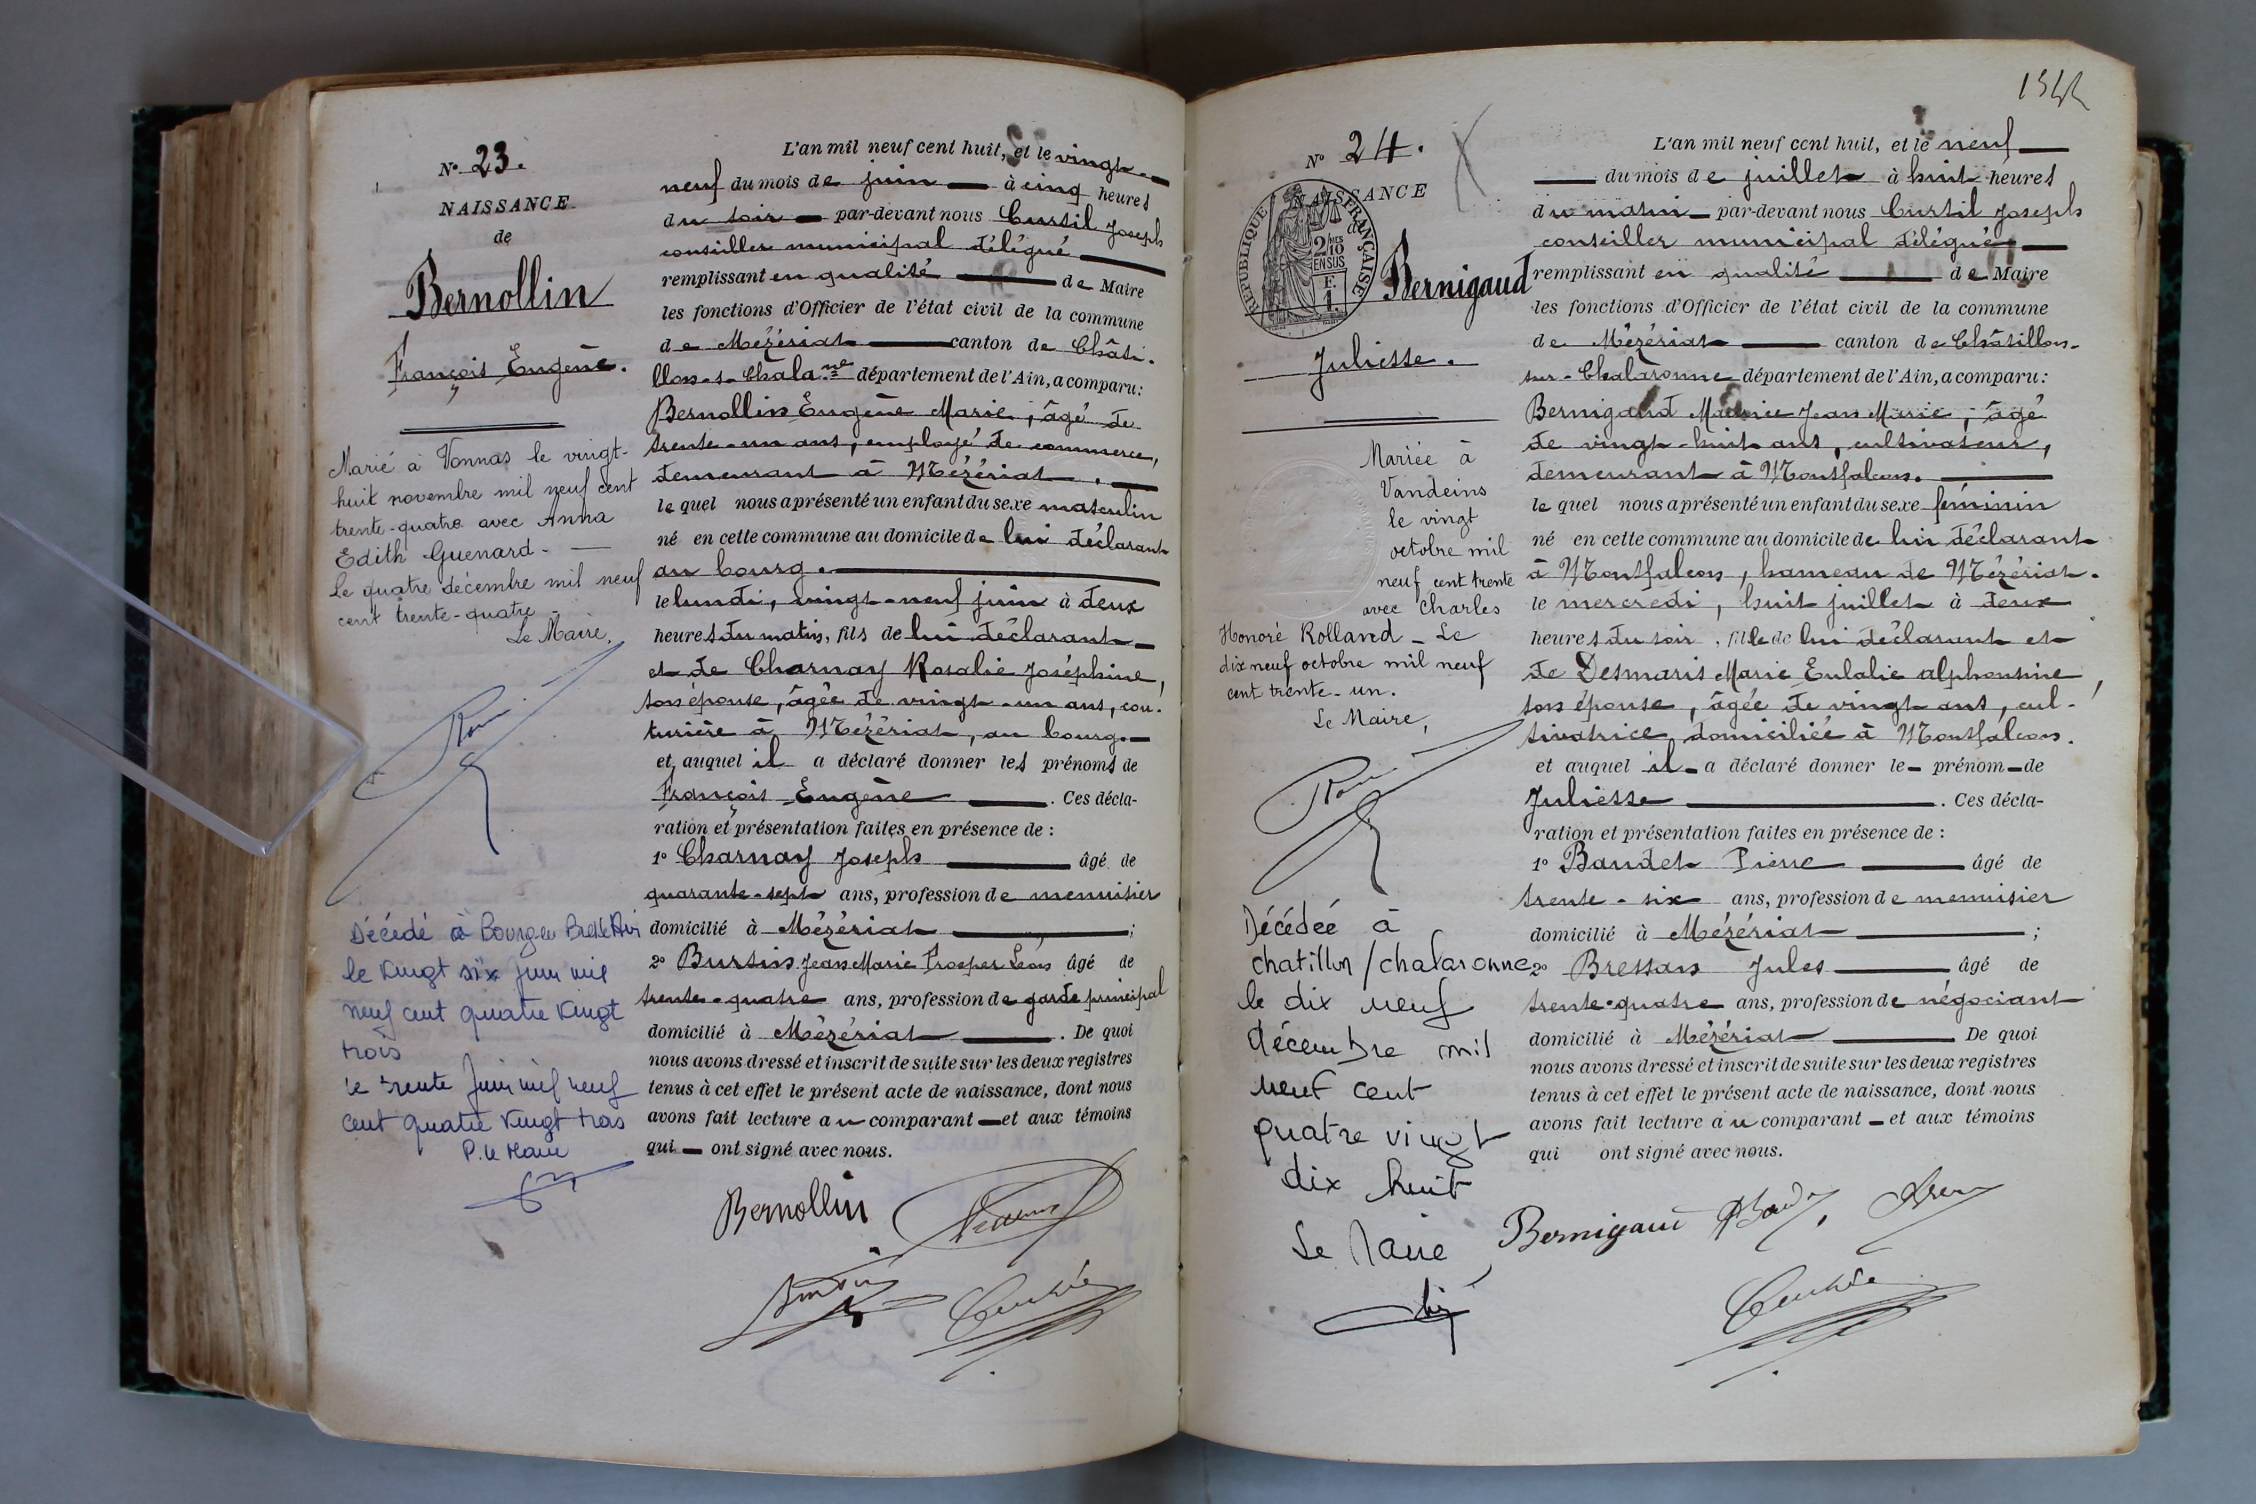 N° 23.
NAISSANCE
de
Bernollin
François Eugène.
Marié à Vonnas le vingt-
huit novembre mil neuf cent
trente-quatre avec Anna
Edith Guenard. —
Le quatre décembre mil neuf
cent trente-quatre -
Le Maire,
Décédé à Bourg en Bresse Ain
le vingt six juin mil
neuf cent quatre vingt
trois
le trente juin mil neuf
cent quatre vingt trois
P. le Maire
L'an mil neuf cent huit, et le vingt-
neuf du mois de juin — à cinq heures
du soir — par-devant nous Curtil Joseph
conseiller municipal délégué
remplissant en qualité — de Maire
les fonctions d'Officier de l'état civil de la commune
de Mézériat — canton de Châti-
llon-s-Chala.ne département de l'Ain, a comparu:
Bernollin Eugène Marie, âgé de
trente-un ans, employé de commerce,
demeurant à Mézériat. —
le quel nous a présenté un enfant du sexe masculin
né en cette commune au domicile de lui déclarant
au bourg. —
le lundi, vingt-neuf juin à deux
heures du matin, fils de lui déclarant —
et de Charnay Rosalie Joséphine,
son épouse, âgée de vingt-un ans, cou-
turière à Mézériat, au bourg. —
et auquel il a déclaré donner les prénoms de
François Eugène — . Ces décla-
ration et présentation faites en présence de :
1° Charnay Joseph — âgé de
quarante-sept ans, profession de menuisier
domicilié à Mézériat — ;
2° Burtin Jean Marie Prosper Léon âgé de
trente-quatre ans, profession de garde principal
domicilié à Mézériat — . De quoi
nous avons dressé et inscrit de suite sur les deux registres
tenus à cet effet le présent acte de naissance, dont nous
avons fait lecture au comparant — et aux témoins
qui — ont signé avec nous.
Bernollin
1542
N° 24.
NAISSANCE
de
RÉPUBLIQUE FRANÇAISE
2/10
EN SUS
F.
1.
Bernigaud
Juliette.
Mariée à
Vandeins
le vingt
octobre mil
neuf cent trente
avec Charles
Honoré Rolland - Le
dix neuf octobre mil neuf
cent trente-un.
Le Maire,
Décédée à
chatillon / chalaronne
le dix neuf
décembre mil
neuf cent
quatre vingt
dix huit
Le Maire
L'an mil neuf cent huit, et le neuf —
— du mois de juillet à huit heures
du matin — par-devant nous Curtil Joseph
conseiller municipal délégué —
remplissant en qualité — de Maire
les fonctions d'Officier de l'état civil de la commune
de Mézériat — canton de Châtillon-
sur-Chalaronne département de l'Ain, a comparu:
Bernigaud Maurice Jean Marie, âgé
de vingt-huit ans, cultivateur,
demeurant à Montfalcon. —
le quel nous a présenté un enfant du sexe féminin
né en cette commune au domicile de lui déclarant
à Montfalcon, hameau de Mézériat.
le mercredi, huit juillet à deux
heures du soir, fille de lui déclarant et
de Desmaris Marie Eulalie alphonsine,
son épouse, âgée de vingt ans, cul-
tivatrice domiciliée à Montfalcon.
et auquel il — a déclaré donner le — prénom — de
Juliette — . Ces décla-
ration et présentation faites en présence de :
1° Baudet Pierre — âgé de
trente-six ans, profession de menuisier
domicilié à Mézériat — ;
2° Bressan Jules — âgé de
trente-quatre ans, profession de négociant
domicilié à Mézériat — De quoi
nous avons dressé et inscrit de suite sur les deux registres
tenus à cet effet le présent acte de naissance, dont nous
avons fait lecture au comparant — et aux témoins
qui ont signé avec nous.
Bernigaud